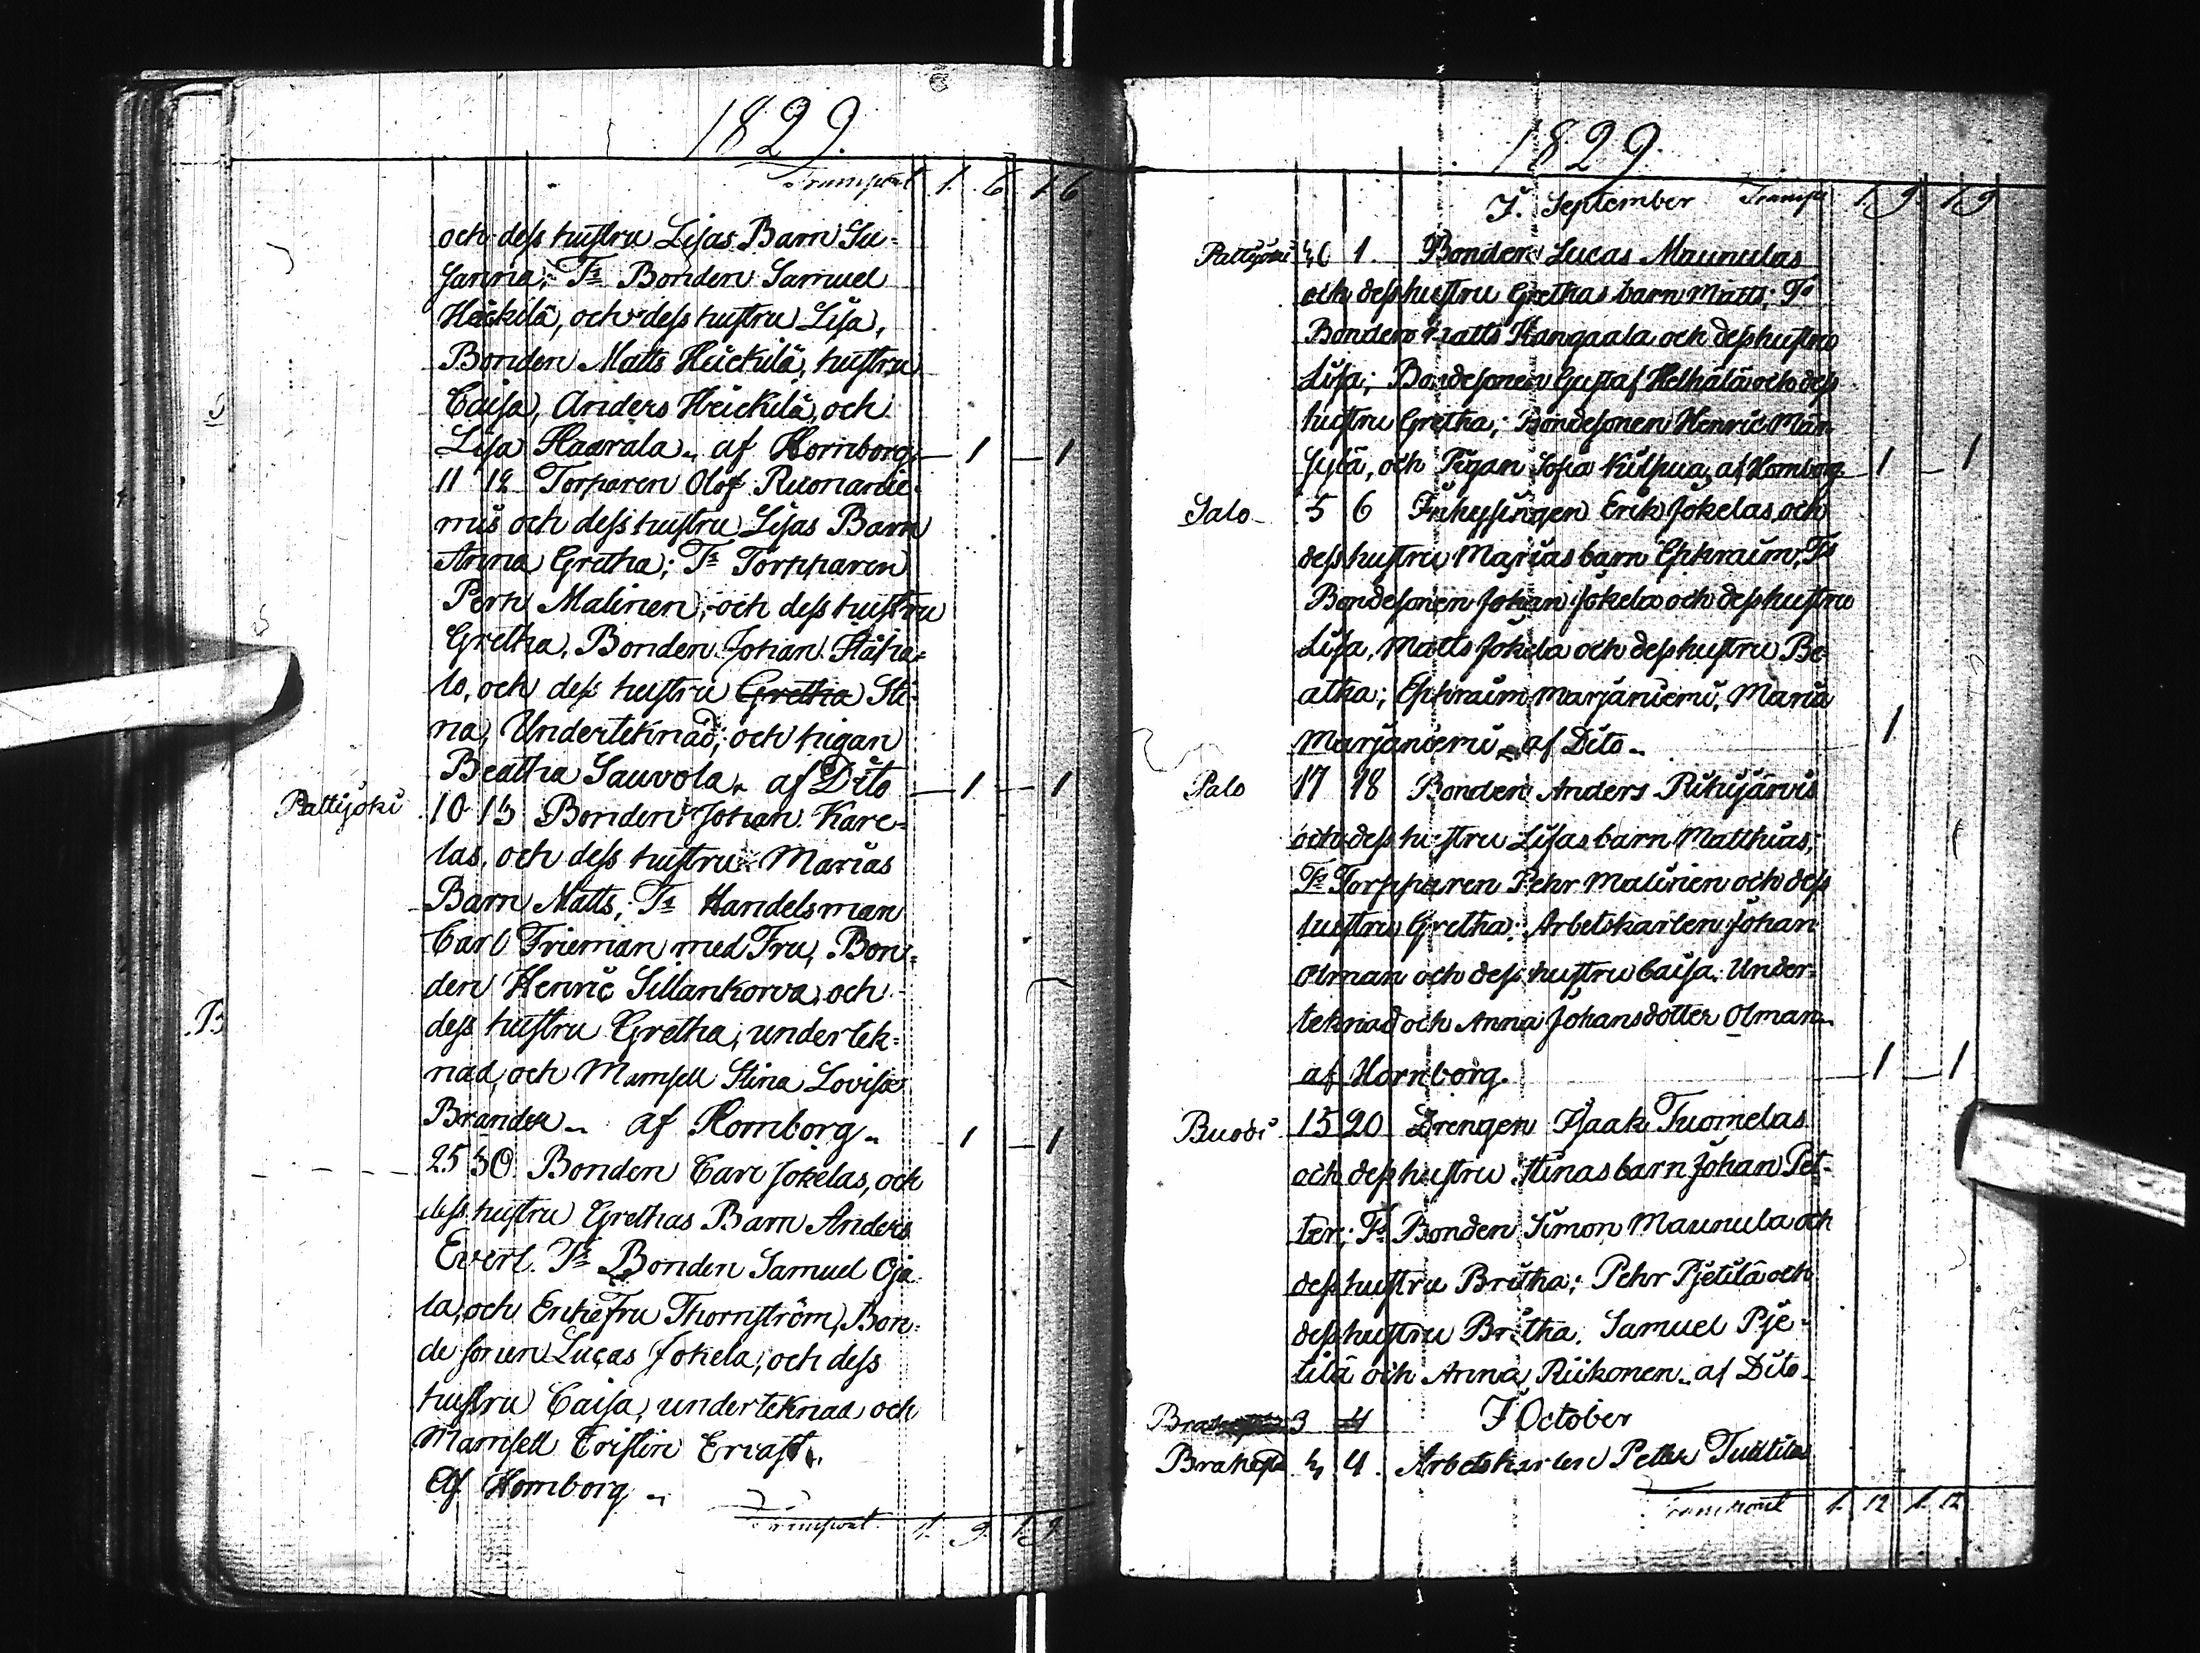 1829.
Transport 1. 6. 1. 6
och dess hustru Lisas Barn Su-
sanna; Ts Bonden Samuel
Heickilä, och dess hustru Lisa,
Bonden Matts Heickilä, hustru
Caisa, Anders Heickilä, och
Lisa Haarala. af Hornborg. 1 1
11 12 Torparen Olof Ruonanie-
mis och dess hustru Lisas Barn
Anna Gretha; Ts Torpparen
Pehr Malinen, och dess hustru
Gretha, Bonden Johan Ståha-
lo, och dess hustru Gretha Sti-
na, Underteknad; och pigan
Beatha Sauvola. af Dito 1 1
Pattijoki 10 13 Bonden Johan Kare-
las, och dess hustru Marias
Barn Matts; Ts Handelsman
Carl Frieman med Fru, Bon-
den Henric Sillankorva, och
dess hustru Gretha, undertek-
nad, och Mamsell Stina Lovisa
Brander. af Hornborg. 1 1
25 30 Bonden Carl Jokelas, och
dess hustru Grethas Barn Anders
Evert. Ts Bonden Samuel Oja-
la, och Enkefru Thornström, Bon-
de sonen Lucas Jokela, och dess
hustru Caisa, underteknad och
Mamsell Cristin Ervast.
Af Hornborg.
Transport 1. 9. 1. 9.
1829.
I. September Transp 1. 9. 1. 9
Pattijoki 30 1. Bonden Lucas Maunulas
och dess hustru Grethas barn Matts; Ts
Bonden Matts Kangaala och dess hustru
Lisa; Bondesonen Gustaf Helhälä och dess
hustru Gretha; Bondesonen Henric Män-
sylä, och Pigan Sofia Kilpua, af Hornborg 1 1
Salo 5 6 Inhysingen Erik Jokelas, och
dess hustru Marias barn Ephraim, Ts
Bondesonen Johan Jokela och dess hustru
Lisa, Matts Jokela och dess hustru Be-
atha; Ephraim Marjaniemi, Maria
Marjaniemi, af Dito. 1
Palo 17 18 Bonden Anders Pihijärvis
och dess hustru Lisas barn Matthias;
Ts Torpparen Pehr Malinen och dess
hustru Gretha; Arbetskarlen Johan
Olman och dess hustru Caisa. Under-
teknad och Anna Johansdotter Olman.
af Hornborg. 1 1
Buodi 15 20 Drengen Isaak Tuomelas
och dess hustru Stinas barn Johan Pet-
ter; Ts Bonden Simon Maunula och
dess hustru Britha; Pehr Pjetilä och
dess hustru Britha. Samuel Pje-
tilä och Anna Riikonen. af Dito.
3 4 I October
Brahest 3 4. Arbetskarlen Petter
Transport 1. 12 1. 12